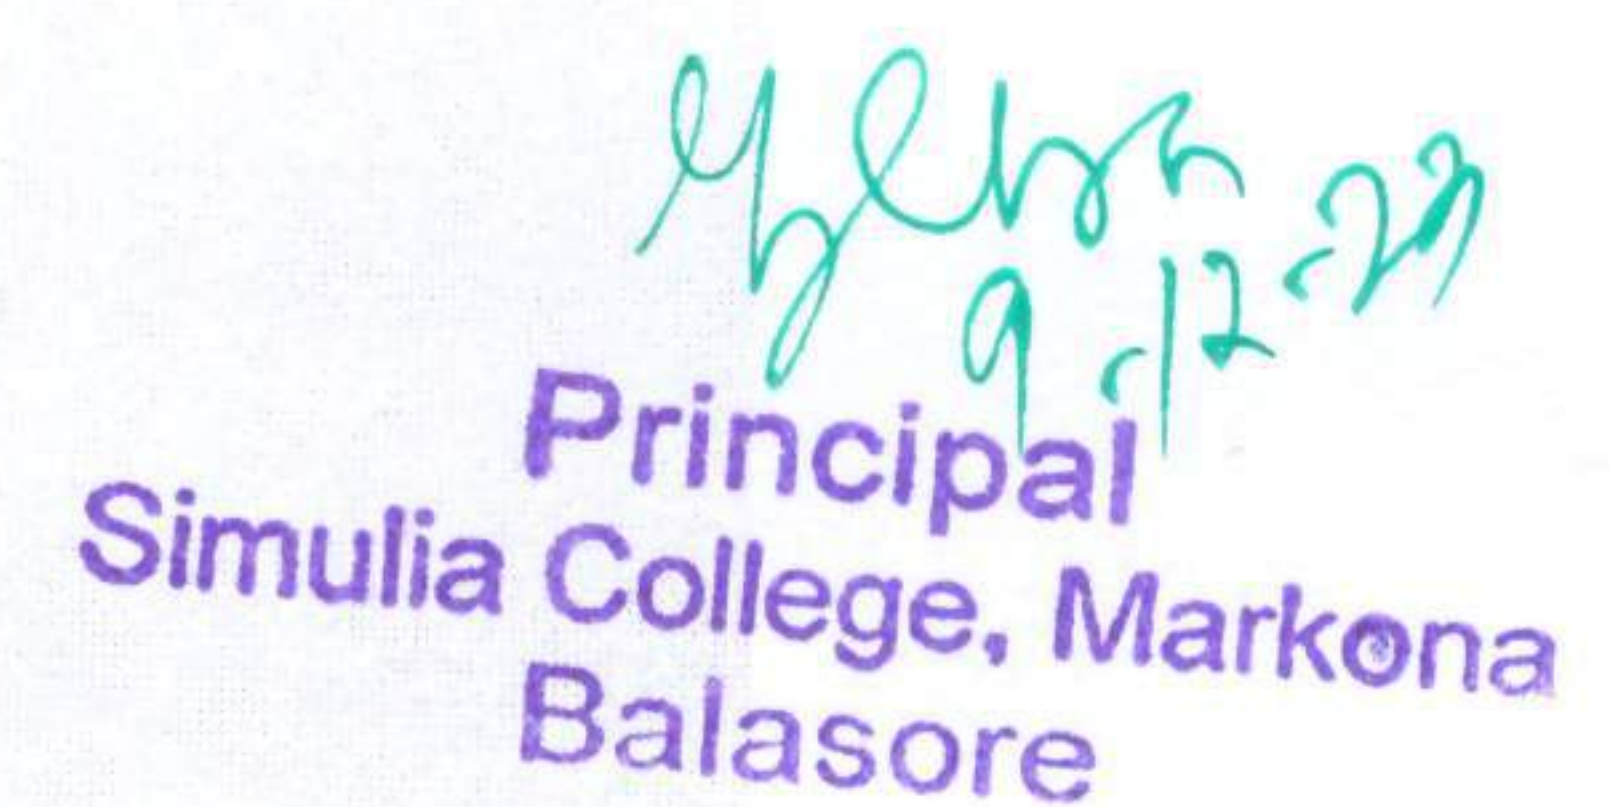 9.12.23
Principal
Simulia College, Markona
Balasore